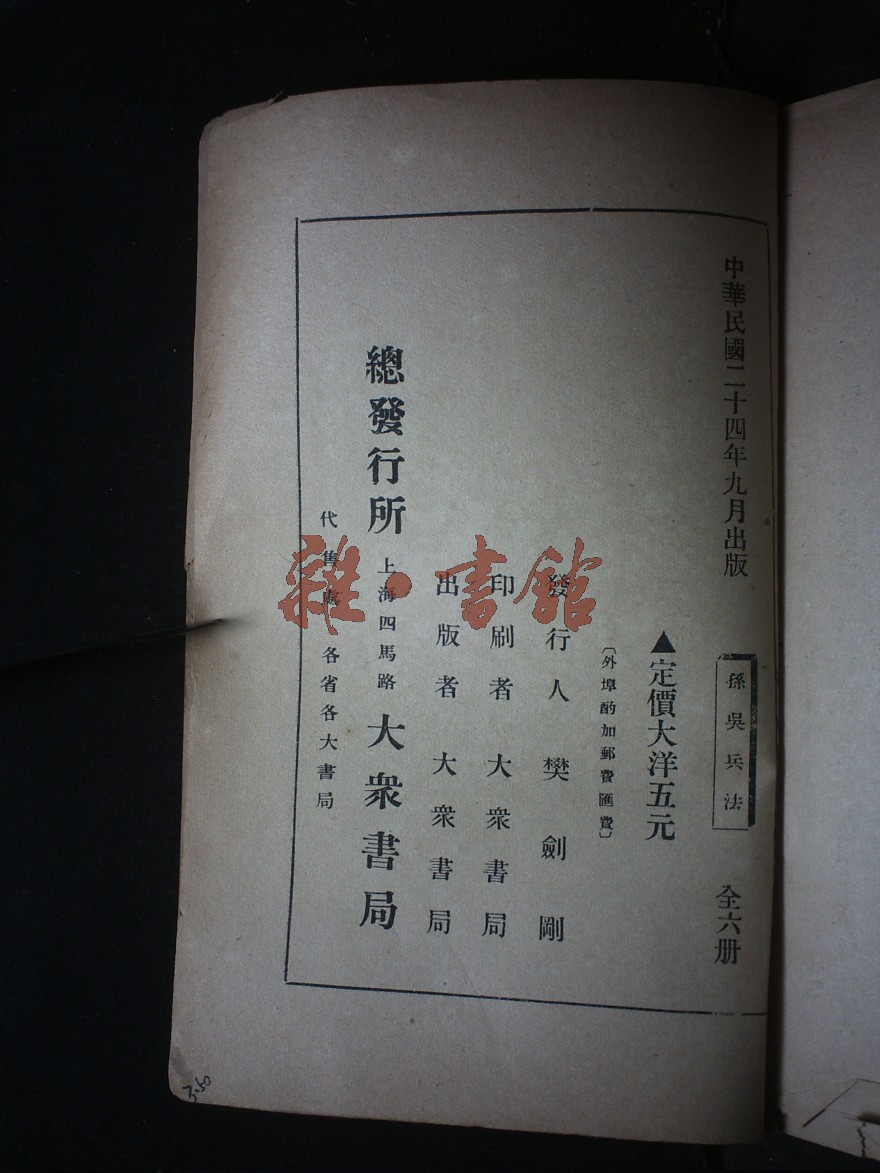 中華民國二十四年九月出版
孫吳兵法
全六册
▲定價大洋五元
〔外埠酌加郵費匯費〕
發行人 樊劍剛
印刷者 大衆書局
出版者 大衆書局
總發行所 上海四馬路 大衆書局
代售處 各省各大書局
雜·書館
3.50